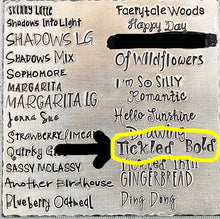 SKERRY LOTTE
Shadows Into Light
SHADOWS LG
SHADOWS MIX
SOPHOMORE
MARGARITA
MARGARITA LG
Jenna Sue
STRAWBERRY LIMEA
Quirky G
SASSY MOLASSY
Another Birdhouse
Blueberry Oatmeal
Faerytale Woods
Happy Day
Of Wildflowers
I'M SO SILLY
Romantic
Hello Sunshine
Drawing
Tickled Bold
TICKLED THIN
GINGERBREAD
Ding Dong